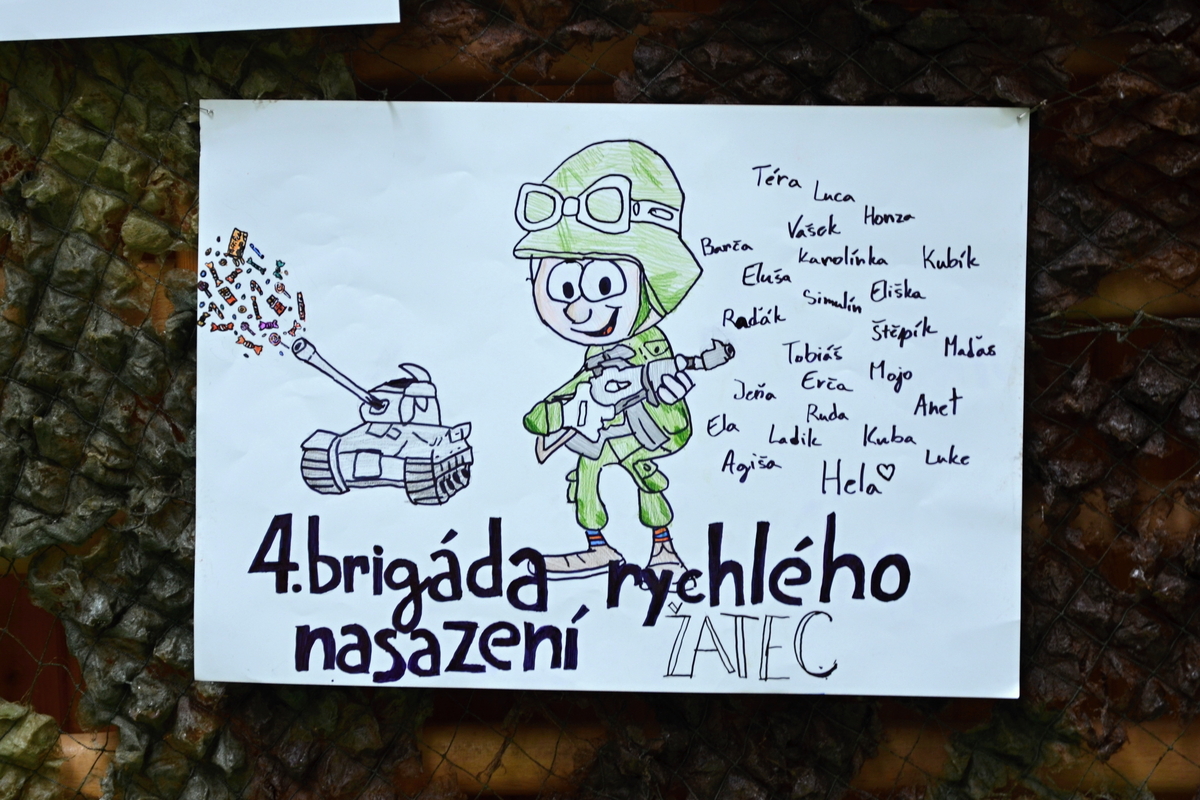 Téra
Luca
Honza
Vašek
Barča
Karolínka
Kubík
Eluša
Simulín
Eliška
Raďák
Štěpík
Maďas
Tobiáš
Mojo
Erča
Jeňa
Anet
Ruda
Ela
Ladik
Kuba
Agiša
Luke
Hela
4.brigáda rychlého
nasazení ŽATEC